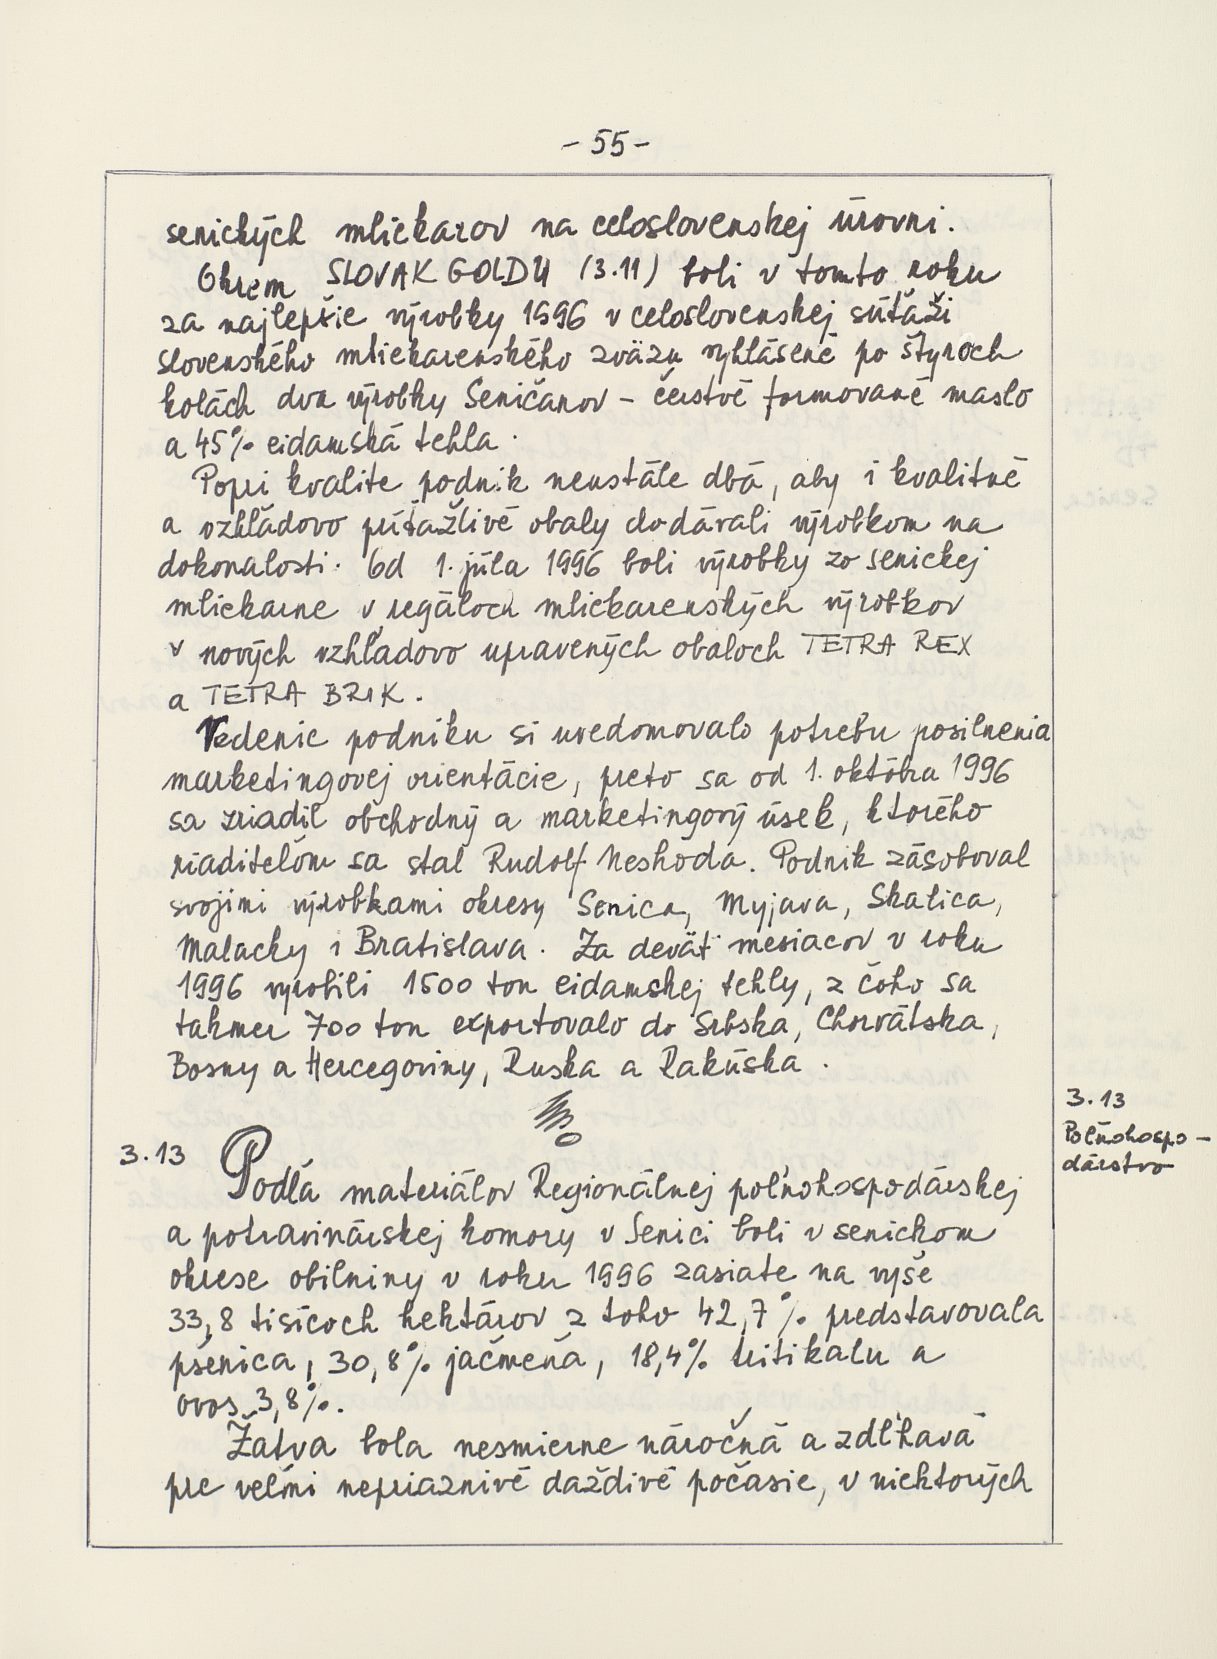 - 55 -
senických mliekarov na celoslovenskej úrovni.
Okrem SLOVAK GOLDU (3.11) boli v tomto roku
za najlepšie výrobky 1996 v celoslovenskej súťaži
slovenského mliekarenského zväzu vyhlásené po štyroch
kolách dva výrobky Seničanov - čerstvé formované maslo
a 45% eidamská tehla.
Popri kvalite podnik neustále dbá, aby i kvalitné
a vzhľadovo príťažlivé obaly dodávali výrobkom na
dokonalosti. Od 1. júla 1996 boli výrobky zo senickej
mliekarne v regáloch mliekarenských výrobkov
v nových vzhľadovo upravených obaloch TETRA REX
a TETRA BRIK.
Vedenie podniku si uvedomovalo potrebu posilnenia
marketingovej orientácie, preto sa od 1. októbra 1996
sa zriadil obchodný a marketingový úsek, ktorého
riaditeľom sa stal Rudolf Neshoda. Podnik zásoboval
svojimi výrobkami okresy Senica, Myjava, Skalica,
Malacky i Bratislava. Za deväť mesiacov v roku
1996 vyrobili 1500 ton eidamskej tehly, z čoho sa
takmer 700 ton exportovalo do Srbska, Chorvátska,
Bosny a Hercegoviny, Ruska a Rakúska.
3.13
Poľnohospo-
dárstvo
3.13 Podľa materiálov Regionálnej poľnohospodárskej
a potravinárskej komory v Senici boli v senickom
okrese obilniny v roku 1996 zasiate na vyše
33,8 tisícoch hektárov z toho 42,7% predstavovala
pšenica, 30,8% jačmeňa, 18,4% tritikalu a
ovos 3,8%.
Žatva bola nesmierne náročná a zdĺhavá
pre veľmi nepriaznivé daždivé počasie, v niektorých